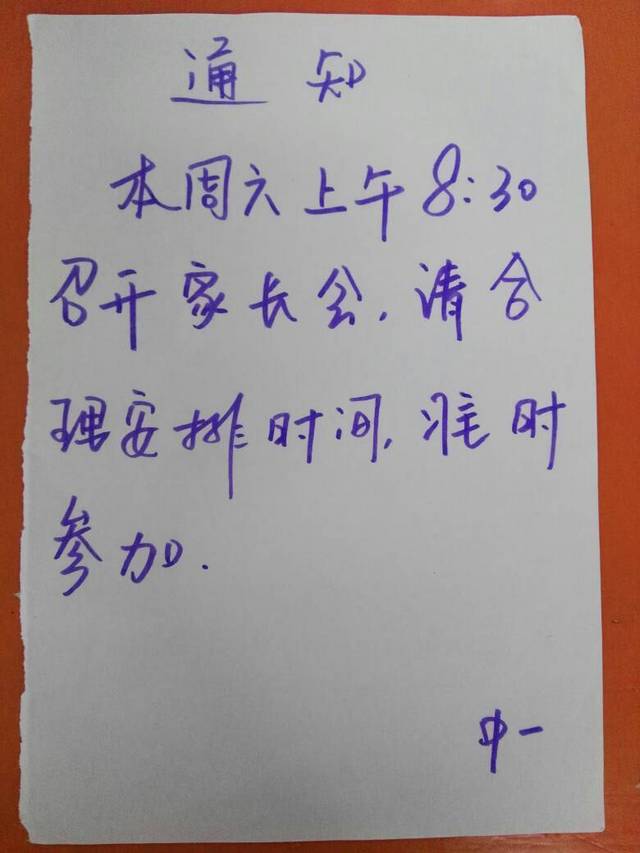 通知
本周六上午8:30
召开家长会,请合
理安排时间,准时
参加.
中一